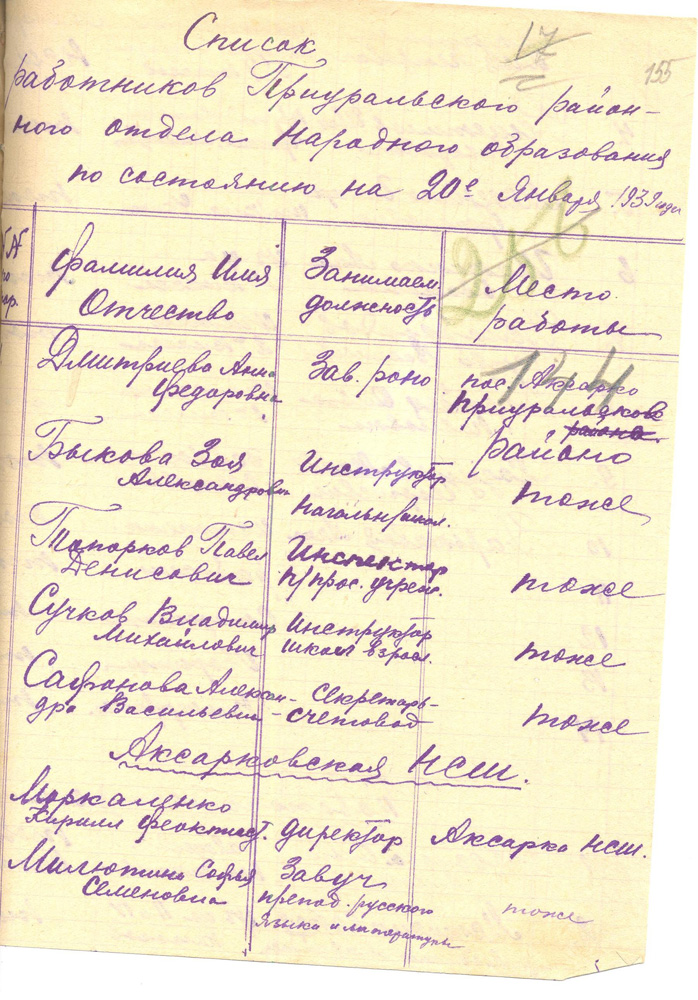 17
155
Список
работников Приуральского район-
ного отдела Народного образования
по состоянию на 20е Января 1939 года
Фамилия Имя Отчество
Занимаем. должность
Место работы
Дмитриева Анна Федоровна
Зав. роно
пос. Аксарко
144
Приуральскова
района
района
Быкова Зоя Александровн
Инструктор Начальн. школ.
тоже
Топорков Павел Денисович
Инспектор п/прос. учреж.
тоже
Сучков Владимир Михайлович
Инструктор школ взросл.
тоже
Сафонова Алексан-
дра Васильевн
Секретарь-
счетовод
тоже
Аксарковская НСШ.
Моркаленко
Кирилл Феоктист.
директор
Аксарка НСШ.
Милютина Софья Семеновна
Завуч
препод. русского
языка и литературы
тоже